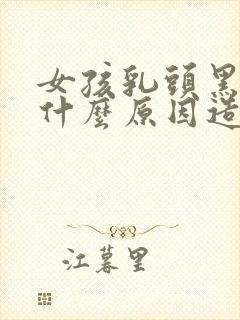 女孩乳頭黑
什麼原因造
江暮里